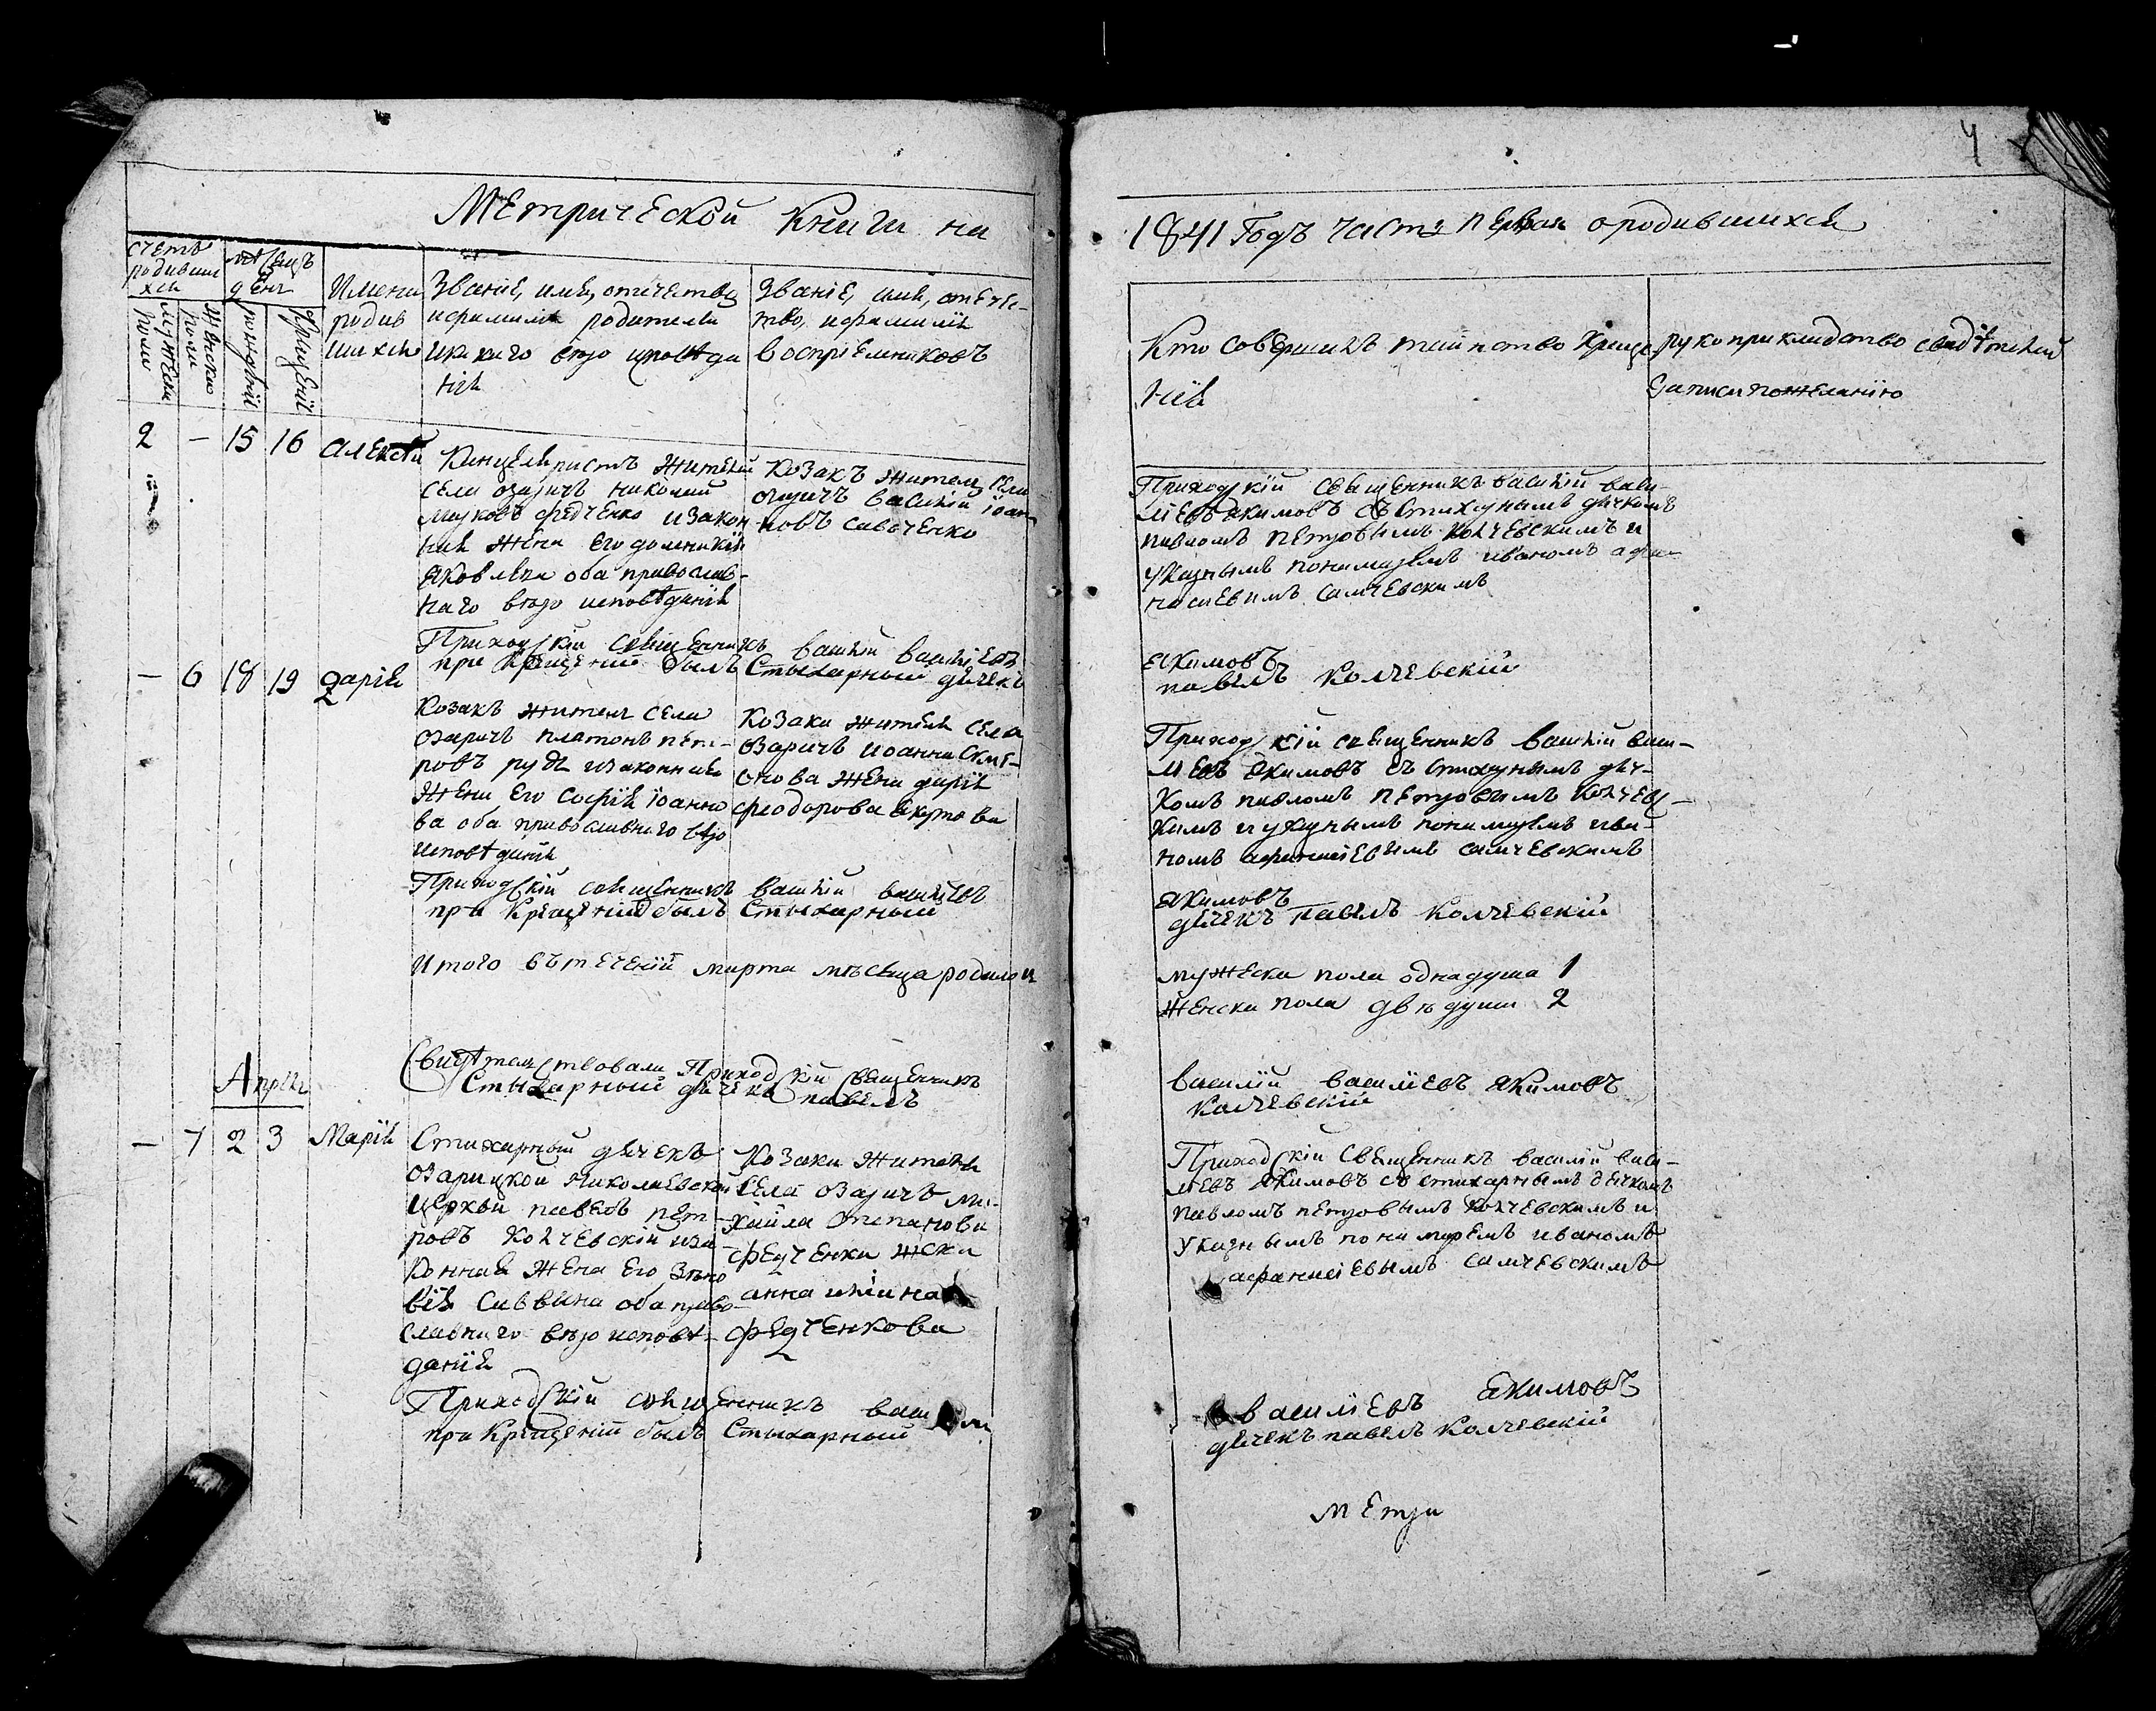 4
Метрической Книги на
1841 Годъ часть первая ородившихся
счетъ
родивши
хся
мѣсяцъ
день
мужеска
пола
женско
пола
рождения
крещения
Имена
родив
шихся
Званіе, имя, отечество
ифамилія родителей
икакого вѣро исповѣда
нія
Званіе, имя, отече-
тво, ифамилія
воспріемниковъ
Кто совершилъ таинство Креще
нія
рукоприкладство свидѣтелей
записи пожеланію
2 — 15 16 Алексѣй
Канцеляристъ житель
села озаричъ николай
федченко изакон
ная жена его домникія
Яковлева оба православ-
наго вѣро исповѣданія
Козакъ житель села
озаричъ василій іоан
новъ савченко
Приходскій священникъ василій васи-
ліевъ Якимовъ съ стихарнымъ дячкомъ
павломъ петровымъ Колчевскимъ и
указнымъ понамаремъ иваномъ афа-
насіевымъ самчевскимъ
Приходскій священникъ василій василіевъ
Якимовъ
при крещеніи былъ Стыхарный дячекъ
павелъ Колчевскій
— 6 18 19 Дарія
Козакъ житель села
озаричъ платонъ пет-
ровъ рудъ изаконная
жена его софія іоанно
ва оба православнаго вѣро
исповѣданія
Козаки житель села
озаричъ иоанна симе-
онова жена дарія
феодорова
Приходскій священникъ василій васи-
ліевъ Якимовъ съ стихарнымъ дяч-
комъ павломъ петровымъ Колчевс-
кимъ и указнымъ понамаремъ ива-
номъ афанасіевымъ самчевскимъ
Приходскій священникъ василій василіевъ
Якимовъ
при крещеніи былъ Стыхарный
дячекъ Павелъ Колчевскій
Итого въ теченіи марта мѣсяца родилось
мужеска пола однадуша 1
женска пола двѣ души 2
Свидѣтельствовали Приходскій Священникъ
василій василіевъ Якимовъ
Стыхарный дячекъ павелъ
Колчевскій
Апрѣль
— 7 2 3 Марія
Стихарный дячекъ
озарицкой николаевской
церкви павелъ пет-
ровъ Колчевскій иза-
конная жена его Зѣно
вія Саввина оба право-
славнаго вѣро исповѣ-
данія
Козаки житель
села озаричъ ми-
хайла степанова
федченка жена
анна
федченкова
Приходскій священникъ василій васи-
ліевъ Якимовъ съ стихарнымъ дячкомъ
павломъ петровымъ Колчевскимъ и
указнымъ понамаремъ иваномъ
афанасіевымъ самчевскимъ
Приходскій священникъ
василіевъ Якимовъ
при крещеніи былъ Стыхарный
дячекъ павелъ Колчевскій
Метри